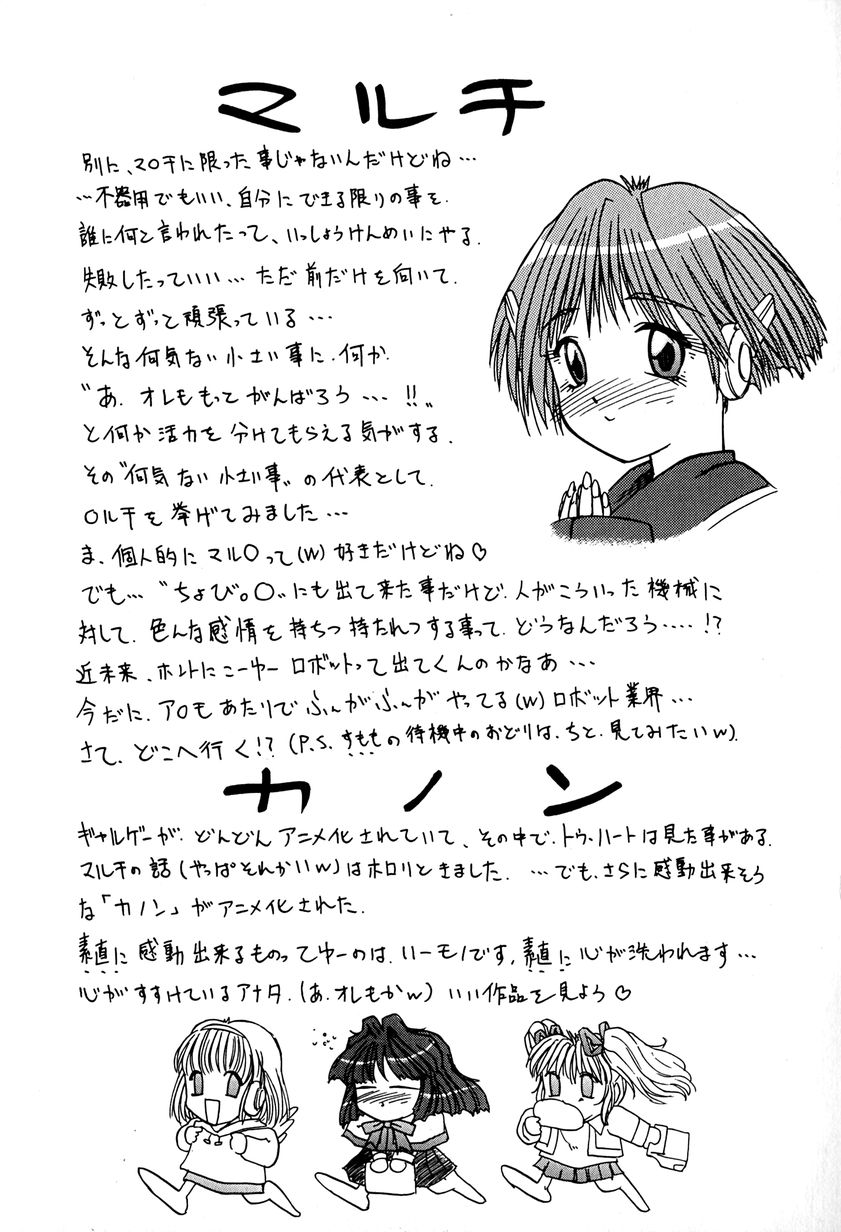 マルチ
別に、マ〇チに限った事じゃないんだけどね…
…不器用でもいい、自分にできる限りの事を
誰に何と言われたって、いっしょうけんめいにやる。
失敗したっていい…ただ前だけを向いて、
ずっとずっと頑張っている…
そんな何気ない小さい事に、何か
〝あ、オレももっとがんばろう…!!〟
と何か活力を分けてもらえる気がする。
その〝何気ない小さい事〟の代表として、
〇ルチを挙げてみました…
ま、個人的にマル〇って(w)好きだけどね♡
でも…〝ちょび。〇〟にも出て来た事だけど、人がこういった機械に
対して、色んな感情を持ちつ持たれつする事って、どうなんだろう…!?
近未来、ホントにこーゆーロボットって出てくんのかなあ…
今だに、ア〇もあたりでふんがふんがやってる(w)ロボット業界…
さて、どこへ行く!?(P.S.すももの待機中のおどりは、ちと、見てみたいw)。
カノン
ギャルゲーが、どんどんアニメ化されていて、その中で、トゥ・ハートは見た事がある。
マルチの話(やっぱそれかいw)はホロリときました。…でも、さらに感動出来そう
な「カノン」がアニメ化された。
素直に感動出来るものってゆーのは、いーモノです。素直に心が洗われます…
心がすすけているアナタ、(あ、オレもかw)いい作品を見よう♡